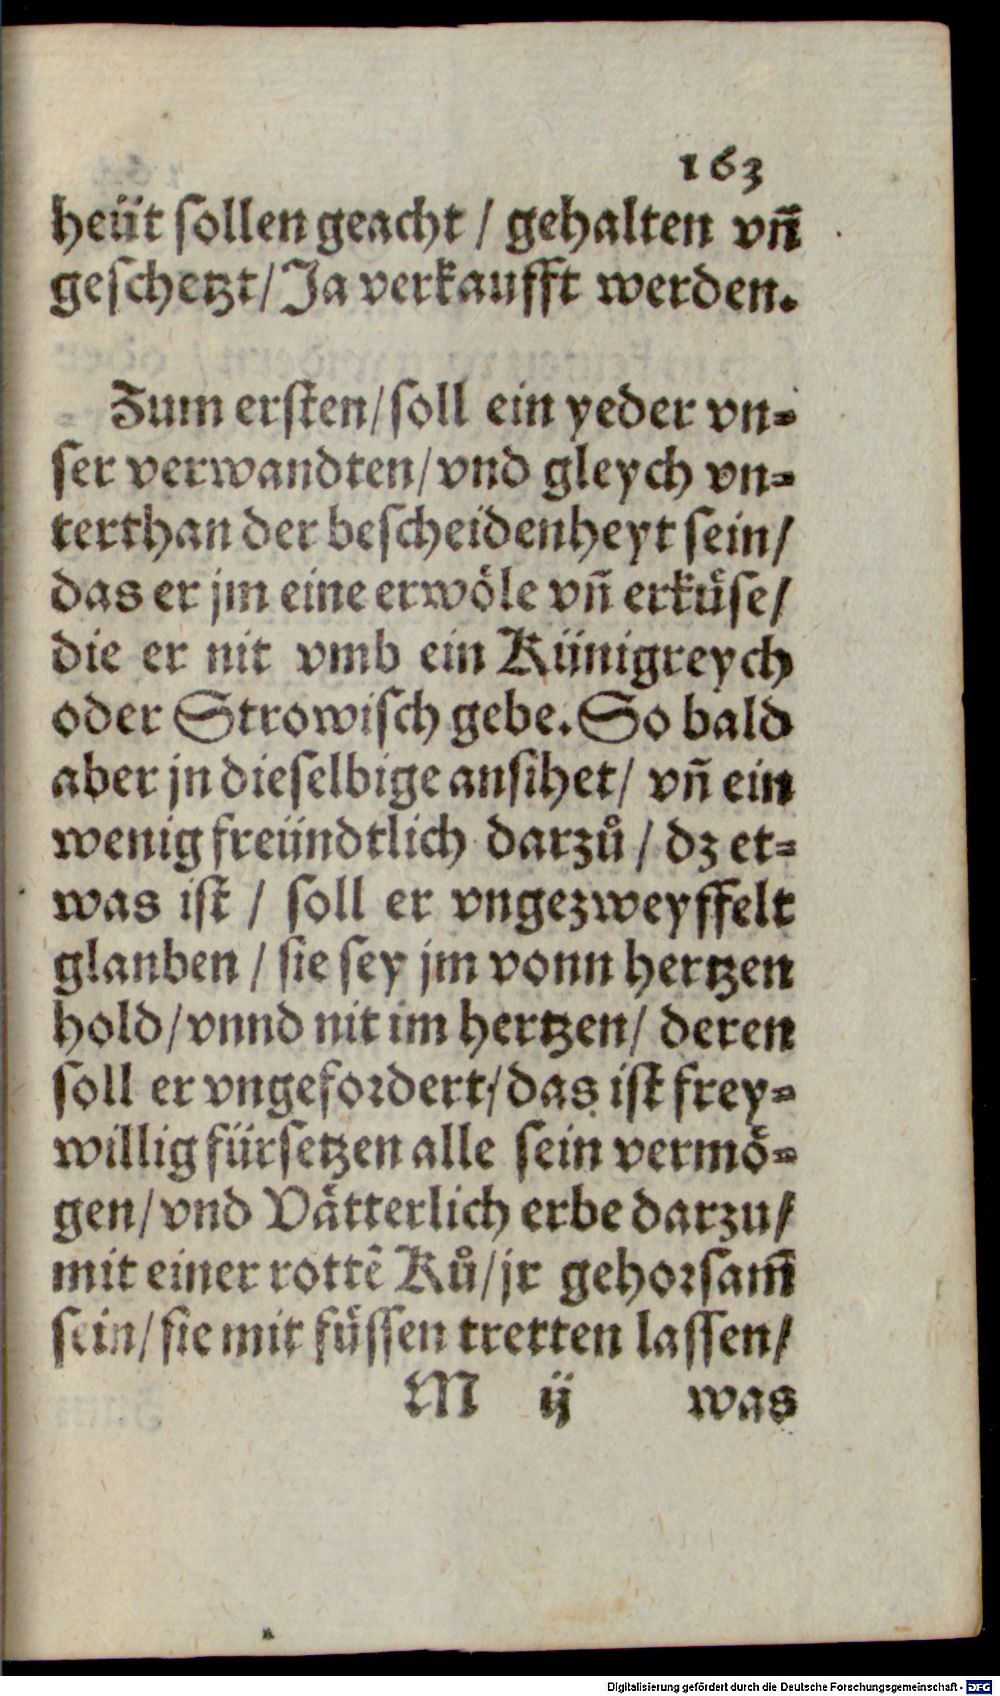 163
heüt sollen geacht / gehalten vñ
geschetzt/Ja verkaufft werden.
Zum ersten/soll ein yeder vn=
ser verwandten/vnd gleych vn=
terthan der bescheidenheyt sein/
das er jm eine erwöle vñ erküse/
die er nit vmb ein Künigreych
oder Strowisch gebe. So bald
aber jn dieselbige ansihet/ vñ ein
wenig freündtlich darzů / dz et=
was ist / soll er vngezweyffelt
glanben / sie sey jm vonn hertzen
hold/vnnd nit im hertzen/ deren
soll er vngefordert/das ist frey=
willig fürsetzen alle sein vermö=
gen/vnd Vätterlich erbe darzu/
mit einer rottē Ků/jr gehorsam̄
sein/sie mit füssen tretten lassen/
M ij was
Digitalisierung gefördert durch die Deutsche Forschungsgemeinschaft - DFG